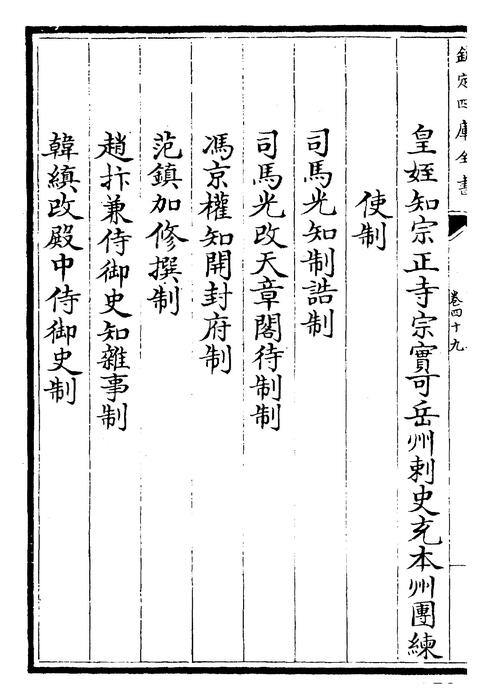 欽定四庫全書
卷四十九
皇姪知宗正寺宗實可岳州刺史充本州團練
使制
司馬光知制誥制
司馬光改天章閣待制制
馮京權知開封府制
范鎮加修撰制
趙抃兼侍御史知雜事制
韓縝改殿中侍御史制